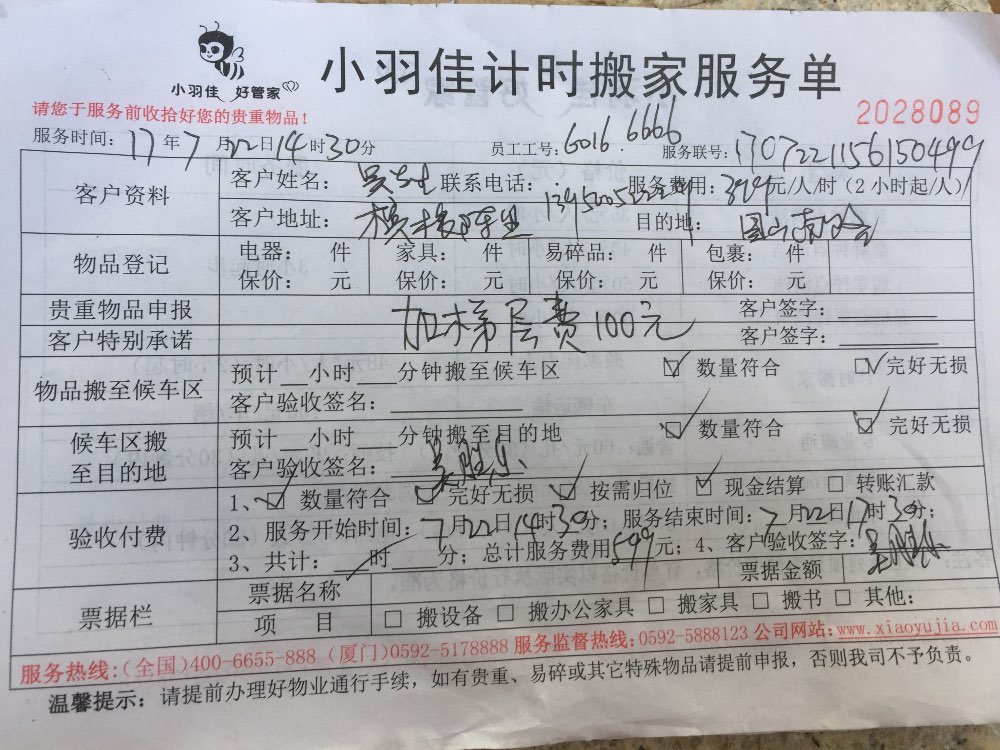 小羽佳 好管家
小羽佳计时搬家服务单
请您于服务前收拾好您的贵重物品！
2028089
服务时间：17年7月22日14时30分 员工工号：6016 6666 服务联号：1707221156150499
客户资料 客户姓名：吴先生 联系电话： 服务费用：399元/人/时（2小时起/人）
客户地址： 目的地：
物品登记 电器： 件 家具： 件 易碎品： 件 包裹： 件
保价： 元 保价： 元 保价： 元 保价： 元
贵重物品申报 客户签字：
加楼层费100元
客户特别承诺 客户签字：
物品搬至候车区 预计__小时__分钟搬至候车区 ☑ 数量符合 ☑完好无损
客户验收签名：
候车区搬至目的地 预计__小时__分钟搬至目的地 ☑ 数量符合 ☑ 完好无损
客户验收签名：
验收付费 1、☑ 数量符合 ☑ 完好无损 ☑ 按需归位 ☑ 现金结算 □ 转账汇款
2、服务开始时间：7月22日14时30分；服务结束时间：7月22日17时30分；
3、共计：__时__分；总计服务费用599元；4、客户验收签字：
票据栏 票据名称 票据金额
项 目 □ 搬设备 □ 搬办公家具 □ 搬家具 □ 搬书 □ 其他：
服务热线：（全国）400-6655-888（厦门）0592-5178888 服务监督热线：0592-5888123 公司网站：www.xiaoyujia.com
温馨提示：请提前办理好物业通行手续，如有贵重、易碎或其它特殊物品请提前申报，否则我司不予负责。